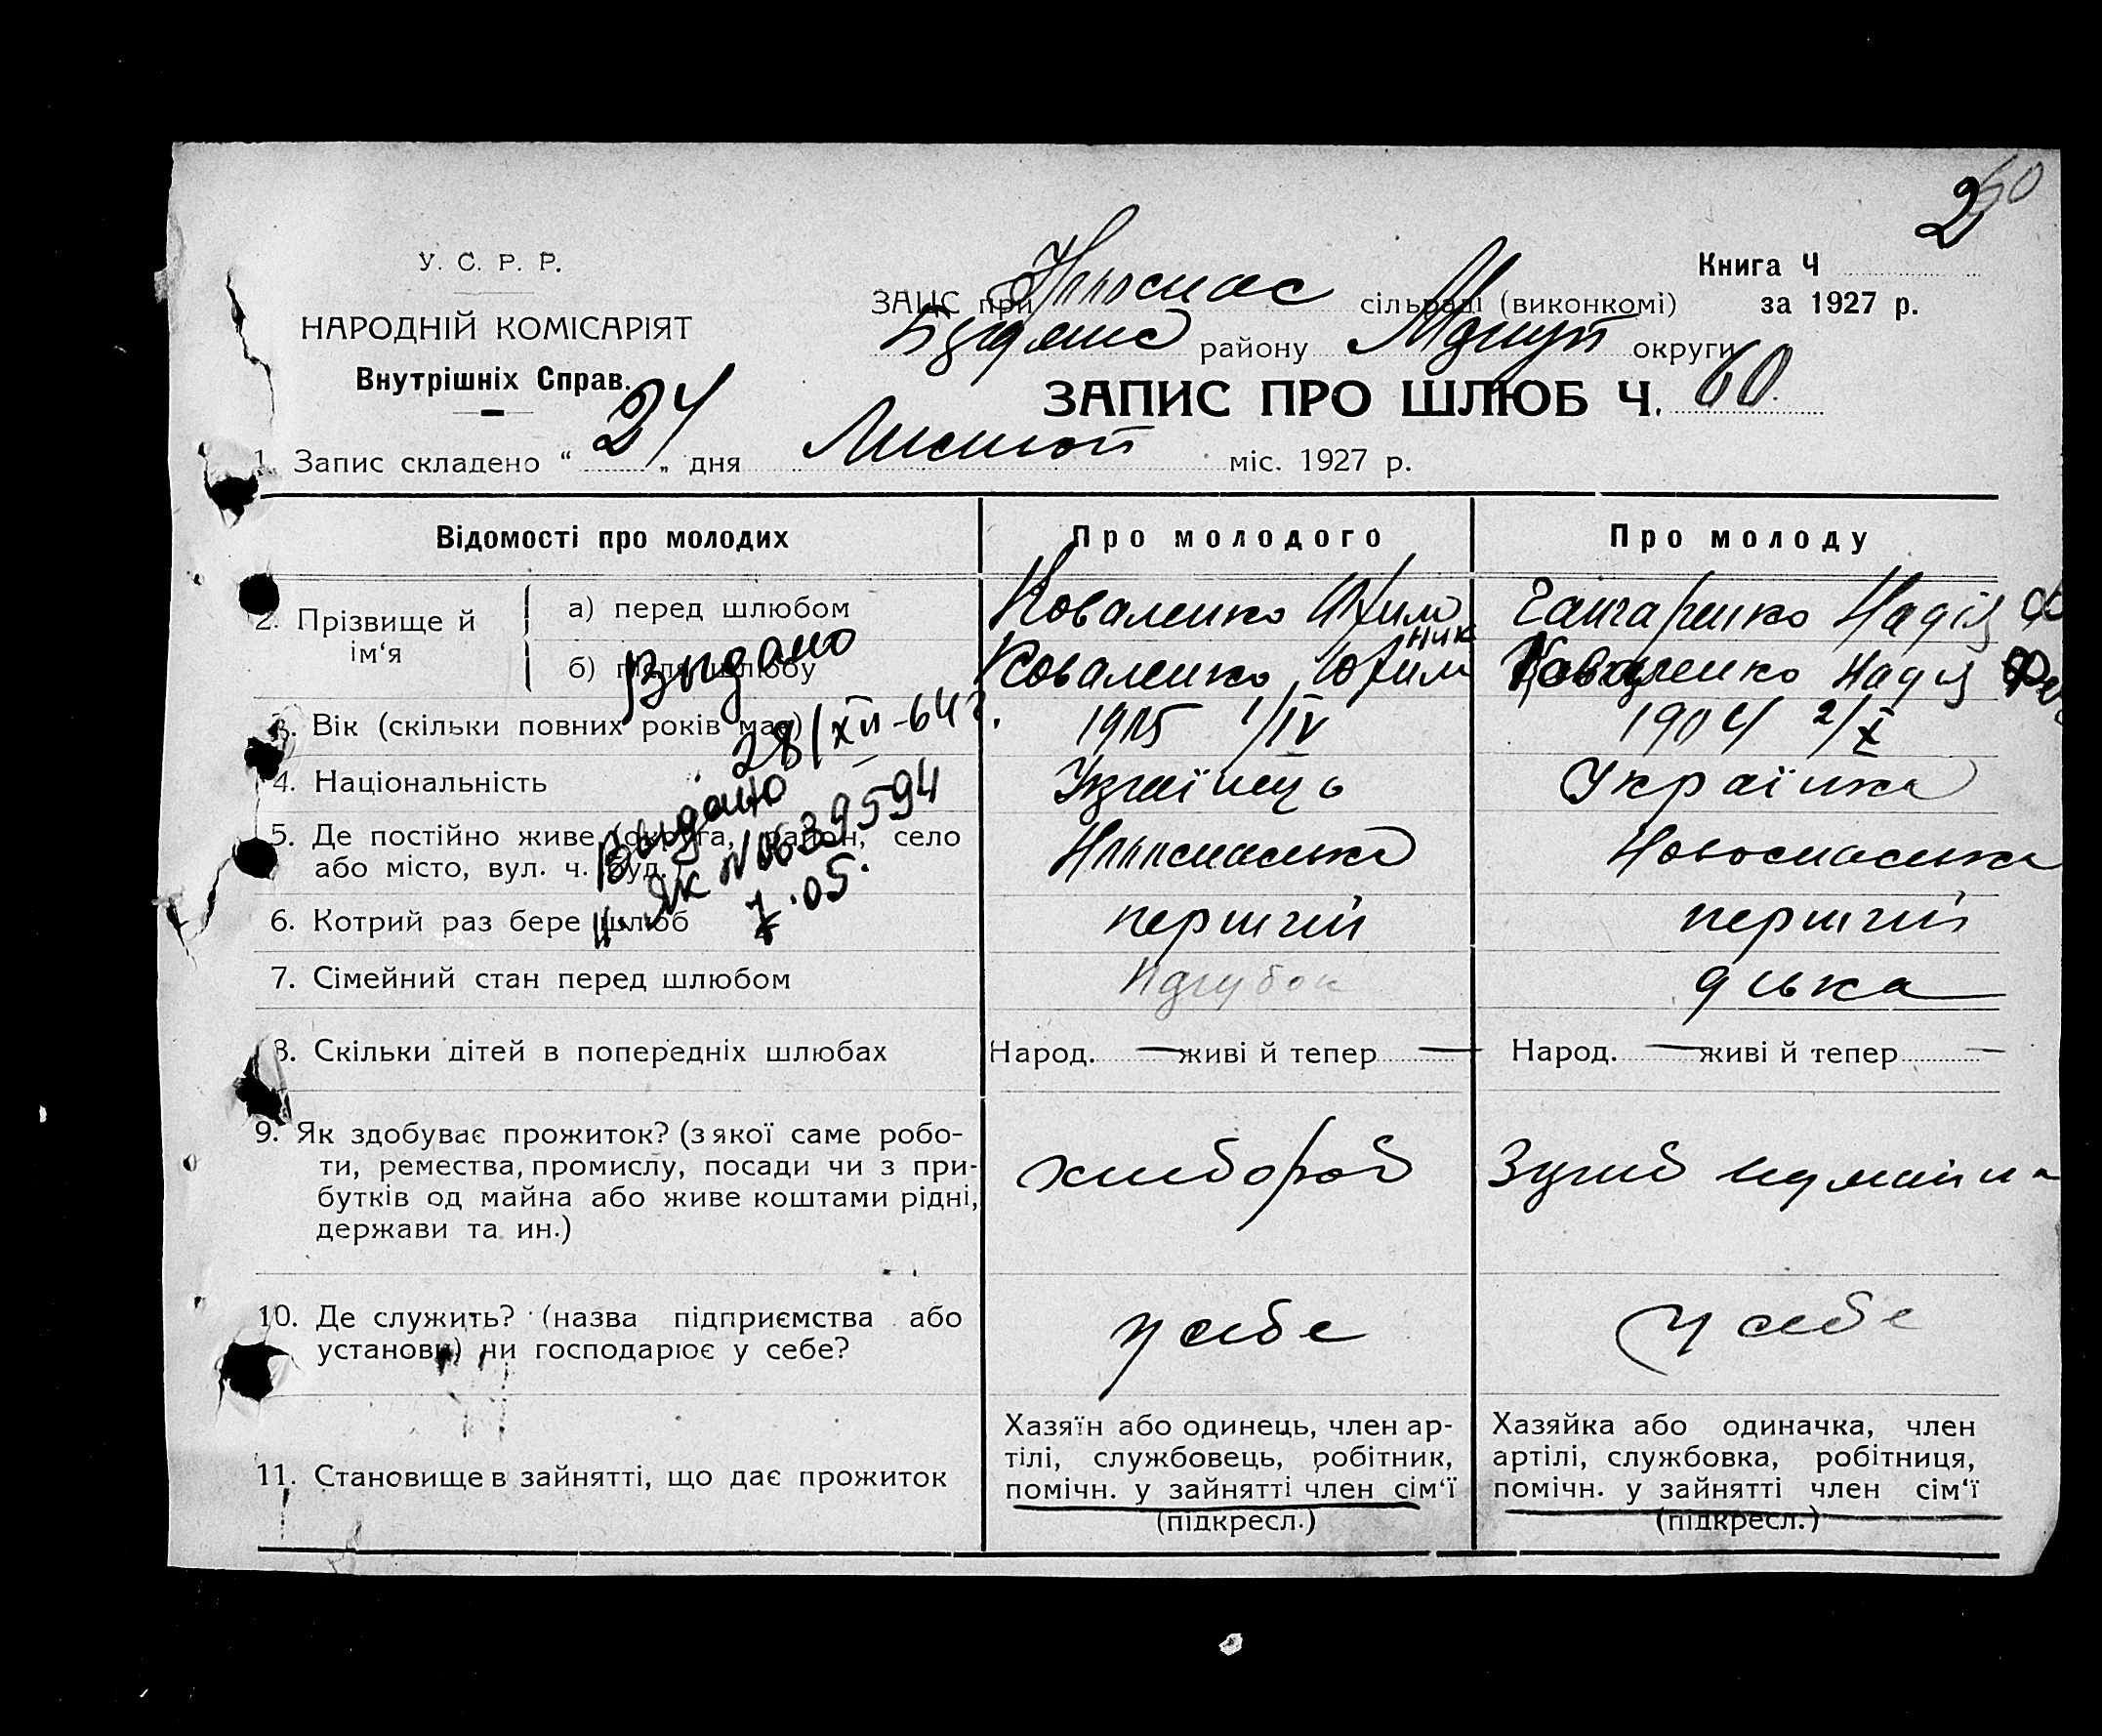 260
У. С. Р. Р.
НАРОДНІЙ КОМІСАРІЯТ
Внутрішніх Справ.
ЗАЦС при сільраді (виконкомі)
району округи
Книга Ч
за 1927 р.
ЗАПИС ПРО ШЛЮБ Ч. 60
1. Запис складено “ 24 „ дня Листоп міс. 1927 р.
Відомості про молодих Про молодого Про молоду
2. Прізвище й ім‘я
а) перед шлюбом Коваленко Юхим Надія
б) після шлюбу Коваленко Юхим Коваленко Надія
Видано
3. Вік (скільки повних років має) 1905 1/IV 1904 2/X
28/XII-64
4. Національність Українець Українка
Видано
5. Де постійно живе (округа, район, село Новоспаська Новоспаська
або місто, вул. ч. буд.
ЯК №0639594
6. Котрий раз бере шлюб перший перший
7.05.
7. Сімейний стан перед шлюбом Парубок дівка
8. Скільки дітей в попередніх шлюбах Народ. — живі й тепер — Народ. — живі й тепер —
9. Як здобуває прожиток? (з якої саме робо-
ти, ремества, промислу, посади чи з при- хлібороб
бутків од майна або живе коштами рідні,
держави та ин.)
10. Де служить? (назва підприємства або у себе у себе
установи) чи господарює у себе?
11. Становище в зайнятті, що дає прожиток
Хазяїн або одинець, член ар-
тілі, службовець, робітник,
помічн. у зайнятті член сім‘ї
(підкресл.)
Хазяйка або одиначка, член
артілі, службовка, робітниця,
помічн. у зайнятті член сім‘ї
(підкресл.)